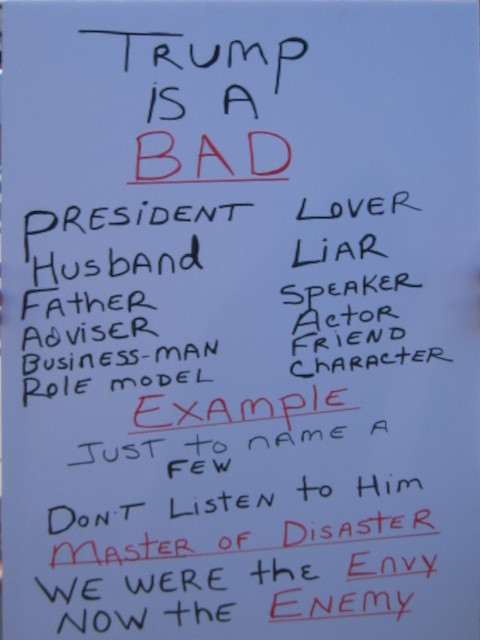 TRUMP
IS A
BAD
PRESIDENT LOVER
HUSBAND LIAR
FATHER SPEAKER
ADVISER ACTOR
BUSINESS-MAN FRIEND
ROLE MODEL CHARACTER
EXAMPLE
JUST to NAME A
FEW
DON'T LISTEN to Him
MASTER OF DISASTER
WE WERE the ENVY
NOW the ENEMY